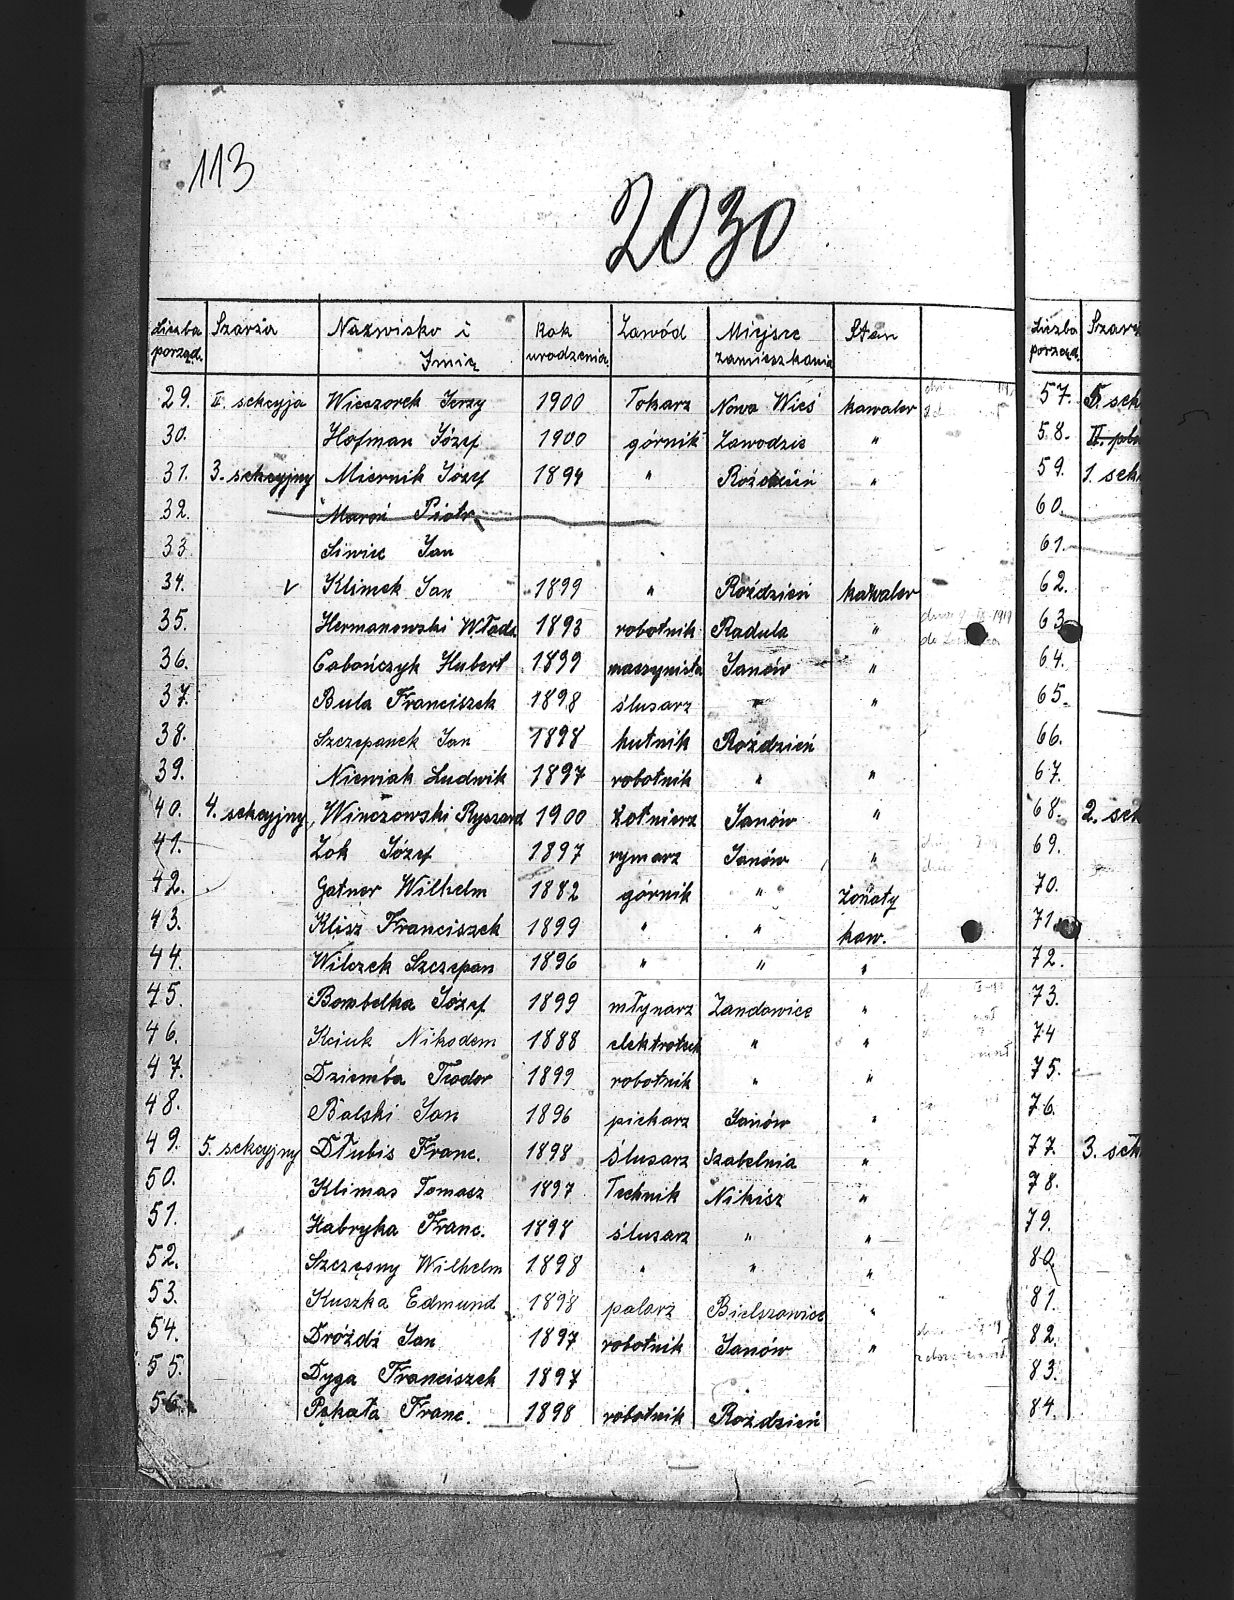 113
2030
Liczba porząd. Szarża Nazwisko i Imię Rok urodzenia Zawód Miejsce zamieszkania Stan Liczba porząd. Szar
29. II. sekcyja Wieczorek Jerzy 1900 Tokarz Nowa Wieś kawaler 57. 5. sek
30. Hofman Józef 1900 górnik Zawodzie " 58. II. plu
31. 3. sekcyjny Miernik Józef 1894 " Roździeń " 59. 1. sek
32. Maroń Piotr 60.
33 Siwiec Jan 61.
34. v Klimek Jan 1899 " Roździeń kawaler 62.
35. Hermanowski Włada 1893 robotnik Radula " 1919 63
36. Cabończyk Hubert 1899 maszynista Janów " 64.
37. Bula Franciszek 1898 ślusarz " " 65.
38. Szczepanek Jan 1898 hutnik Roździeń 66.
39. Niewiak Ludwik 1897 robotnik " " 67.
40. 4. sekcyjny Winczowski Ryszard 1900 żołnierz Janów " 68. 2. sek
41. Zok Józef 1897 rymarz Janów " 69.
42. Gatner Wilhelm 1882 górnik " żonaty 70.
43. Klisz Franciszek 1899 " " kaw. 71.
44. Wilczek Szczepan 1896 " " " 72.
45. Bombelka Józef 1899 młynarz Zandowice " 73.
46. Kciuk Nikodem 1888 elektrotech " " 74
47. Dziemba Teodor 1899 robotnik " " 75.
48. Balski Jan 1896 piekarz Janów " 76.
49. 5. sekcyjny Dłubis Franc. 1898 ślusarz Szabelnia " 77. 3. sek
50. Klimas Tomasz 1897 Technik Nikisz " 78.
51. Habryka Franc. 1898 ślusarz " " 79.
52. Szczęsny Wilhelm 1898 " " " 80.
53. Kuszka Edmund 1898 palarz Bielszowice " 81.
54. Dróżdż Jan 1897 robotnik Janów " 82.
55. Dyga Franciszek 1897 83.
56. Pekała Franc. 1898 robotnik Roździeń 84.